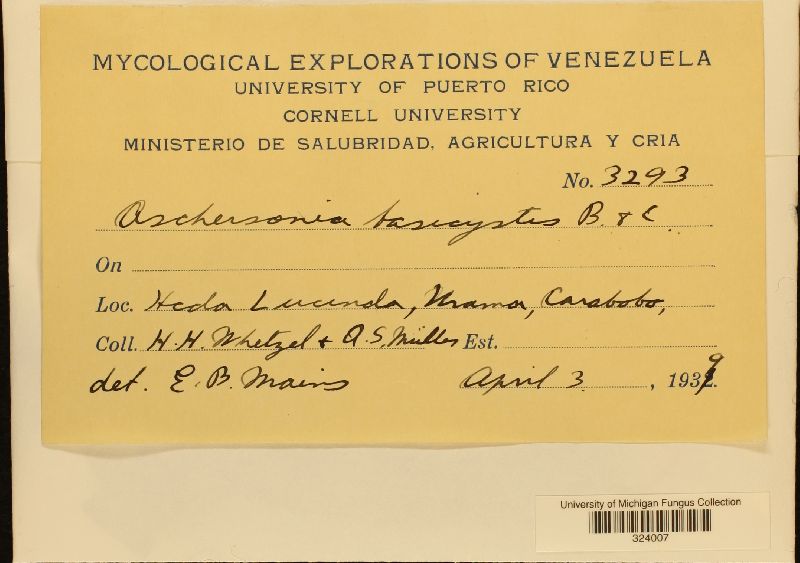 MYCOLOGICAL EXPLORATIONS OF VENEZUELA
UNIVERSITY OF PUERTO RICO
CORNELL UNIVERSITY
MINISTERIO DE SALUBRIDAD, AGRICULTURA Y CRIA
No. 3293
Aschersonia basicystis B. & C.
On
Loc. Hcda Lucinda, Urama, Carabobo,
Coll. H. H. Whetzel & A. S. Muller Est.
det. E. B. Mains April 3, 1939.
University of Michigan Fungus Collection
324007